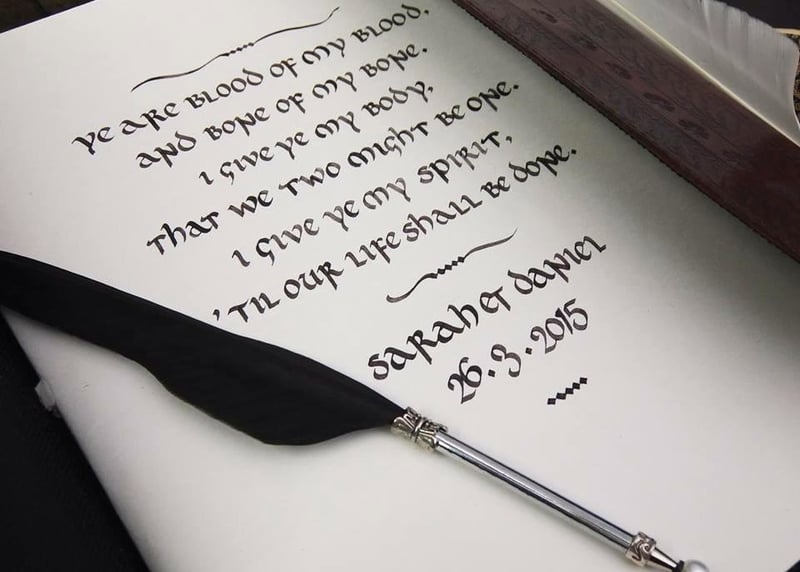 Ye are Blood of my Blood,
and Bone of my Bone.
I give ye my Body,
that we two might be one.
I give ye my spirit,
'til our life shall be done.
Sarah et Daniel
26.3.2015